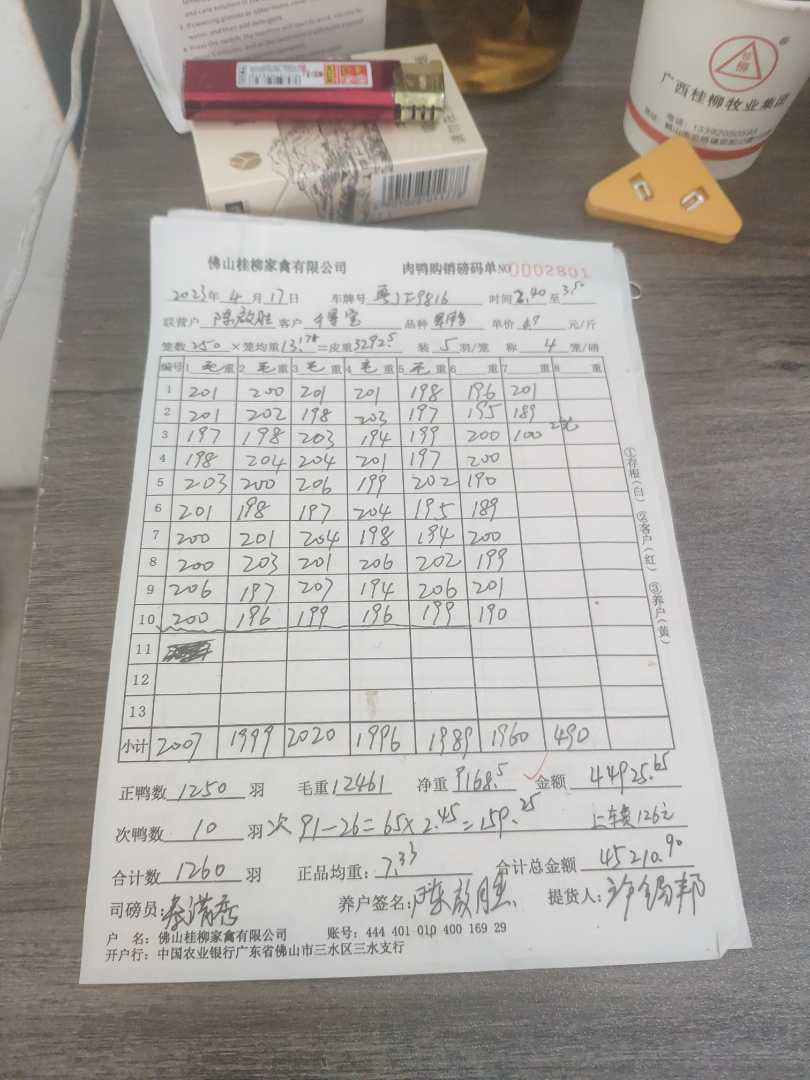 广西桂柳牧业集团
佛山桂柳家禽有限公司 肉鸭购销磅码单 NO 0002801
2023年 4 月 17 日 车牌号 时间 2.40 至 3.50
联营户 陈啟胜 客户 品种 单价 4.9 元/斤
笼数 250 ×笼均重 13.17 =皮重 3292.5 装 5 羽/笼 称 4 笼/磅
编号 1 毛 重 2 毛 重 3 毛 重 4 毛 重 5 毛 重 6 重 7 重 8 重
1 201 200 201 201 198 196 201
2 201 202 198 203 197 195 189
3 197 198 203 194 199 200 100
4 198 204 204 201 197 200
5 203 200 206 199 202 190
6 201 198 197 204 195 189
7 200 201 204 198 194 200
8 200 203 201 206 202 199
9 206 197 207 194 206 201
10 200 196 199 196 199 190
11
12
13
小计 2007 1999 2020 1996 1989 1960 490
①存根(白) ②客户(红) ③养户(黄)
正鸭数 1250 羽 毛重 12461 净重 9168.5 金额 44925.65
次鸭数 10 羽 次 91-26=65×2.45=159.25 上车费126元
合计数 1260 羽 正品均重: 7.33 合计总金额 45210.90
司磅员: 养户签名: 陈啟胜 提货人: 许锡邦
户 名: 佛山桂柳家禽有限公司 账号: 444 401 010 400 169 29
开户行: 中国农业银行广东省佛山市三水区三水支行